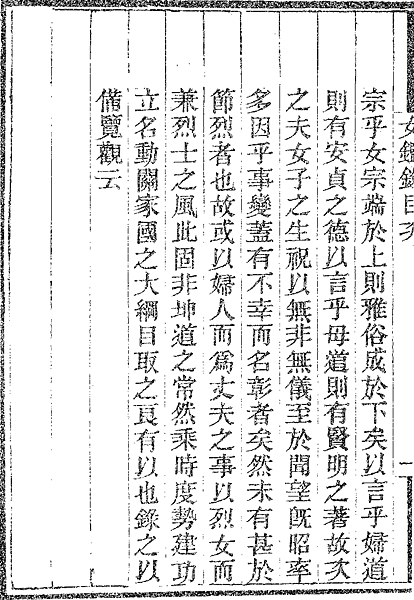 女鑑錄目次
一
宗乎女宗端於上則雅俗成於下矣以言乎婦道
則有安貞之德以言乎母道則有賢明之著故次
之夫女子之生祝以無非無儀至於聞望旣昭率
多因乎事變蓋有不幸而名彰者矣然未有甚於
節烈者也故或以婦人而爲丈夫之事以烈女而
兼烈士之風此固非坤道之常然乘時度勢建功
立名動關家國之大綱目取之良有以也錄之以
備覽觀云